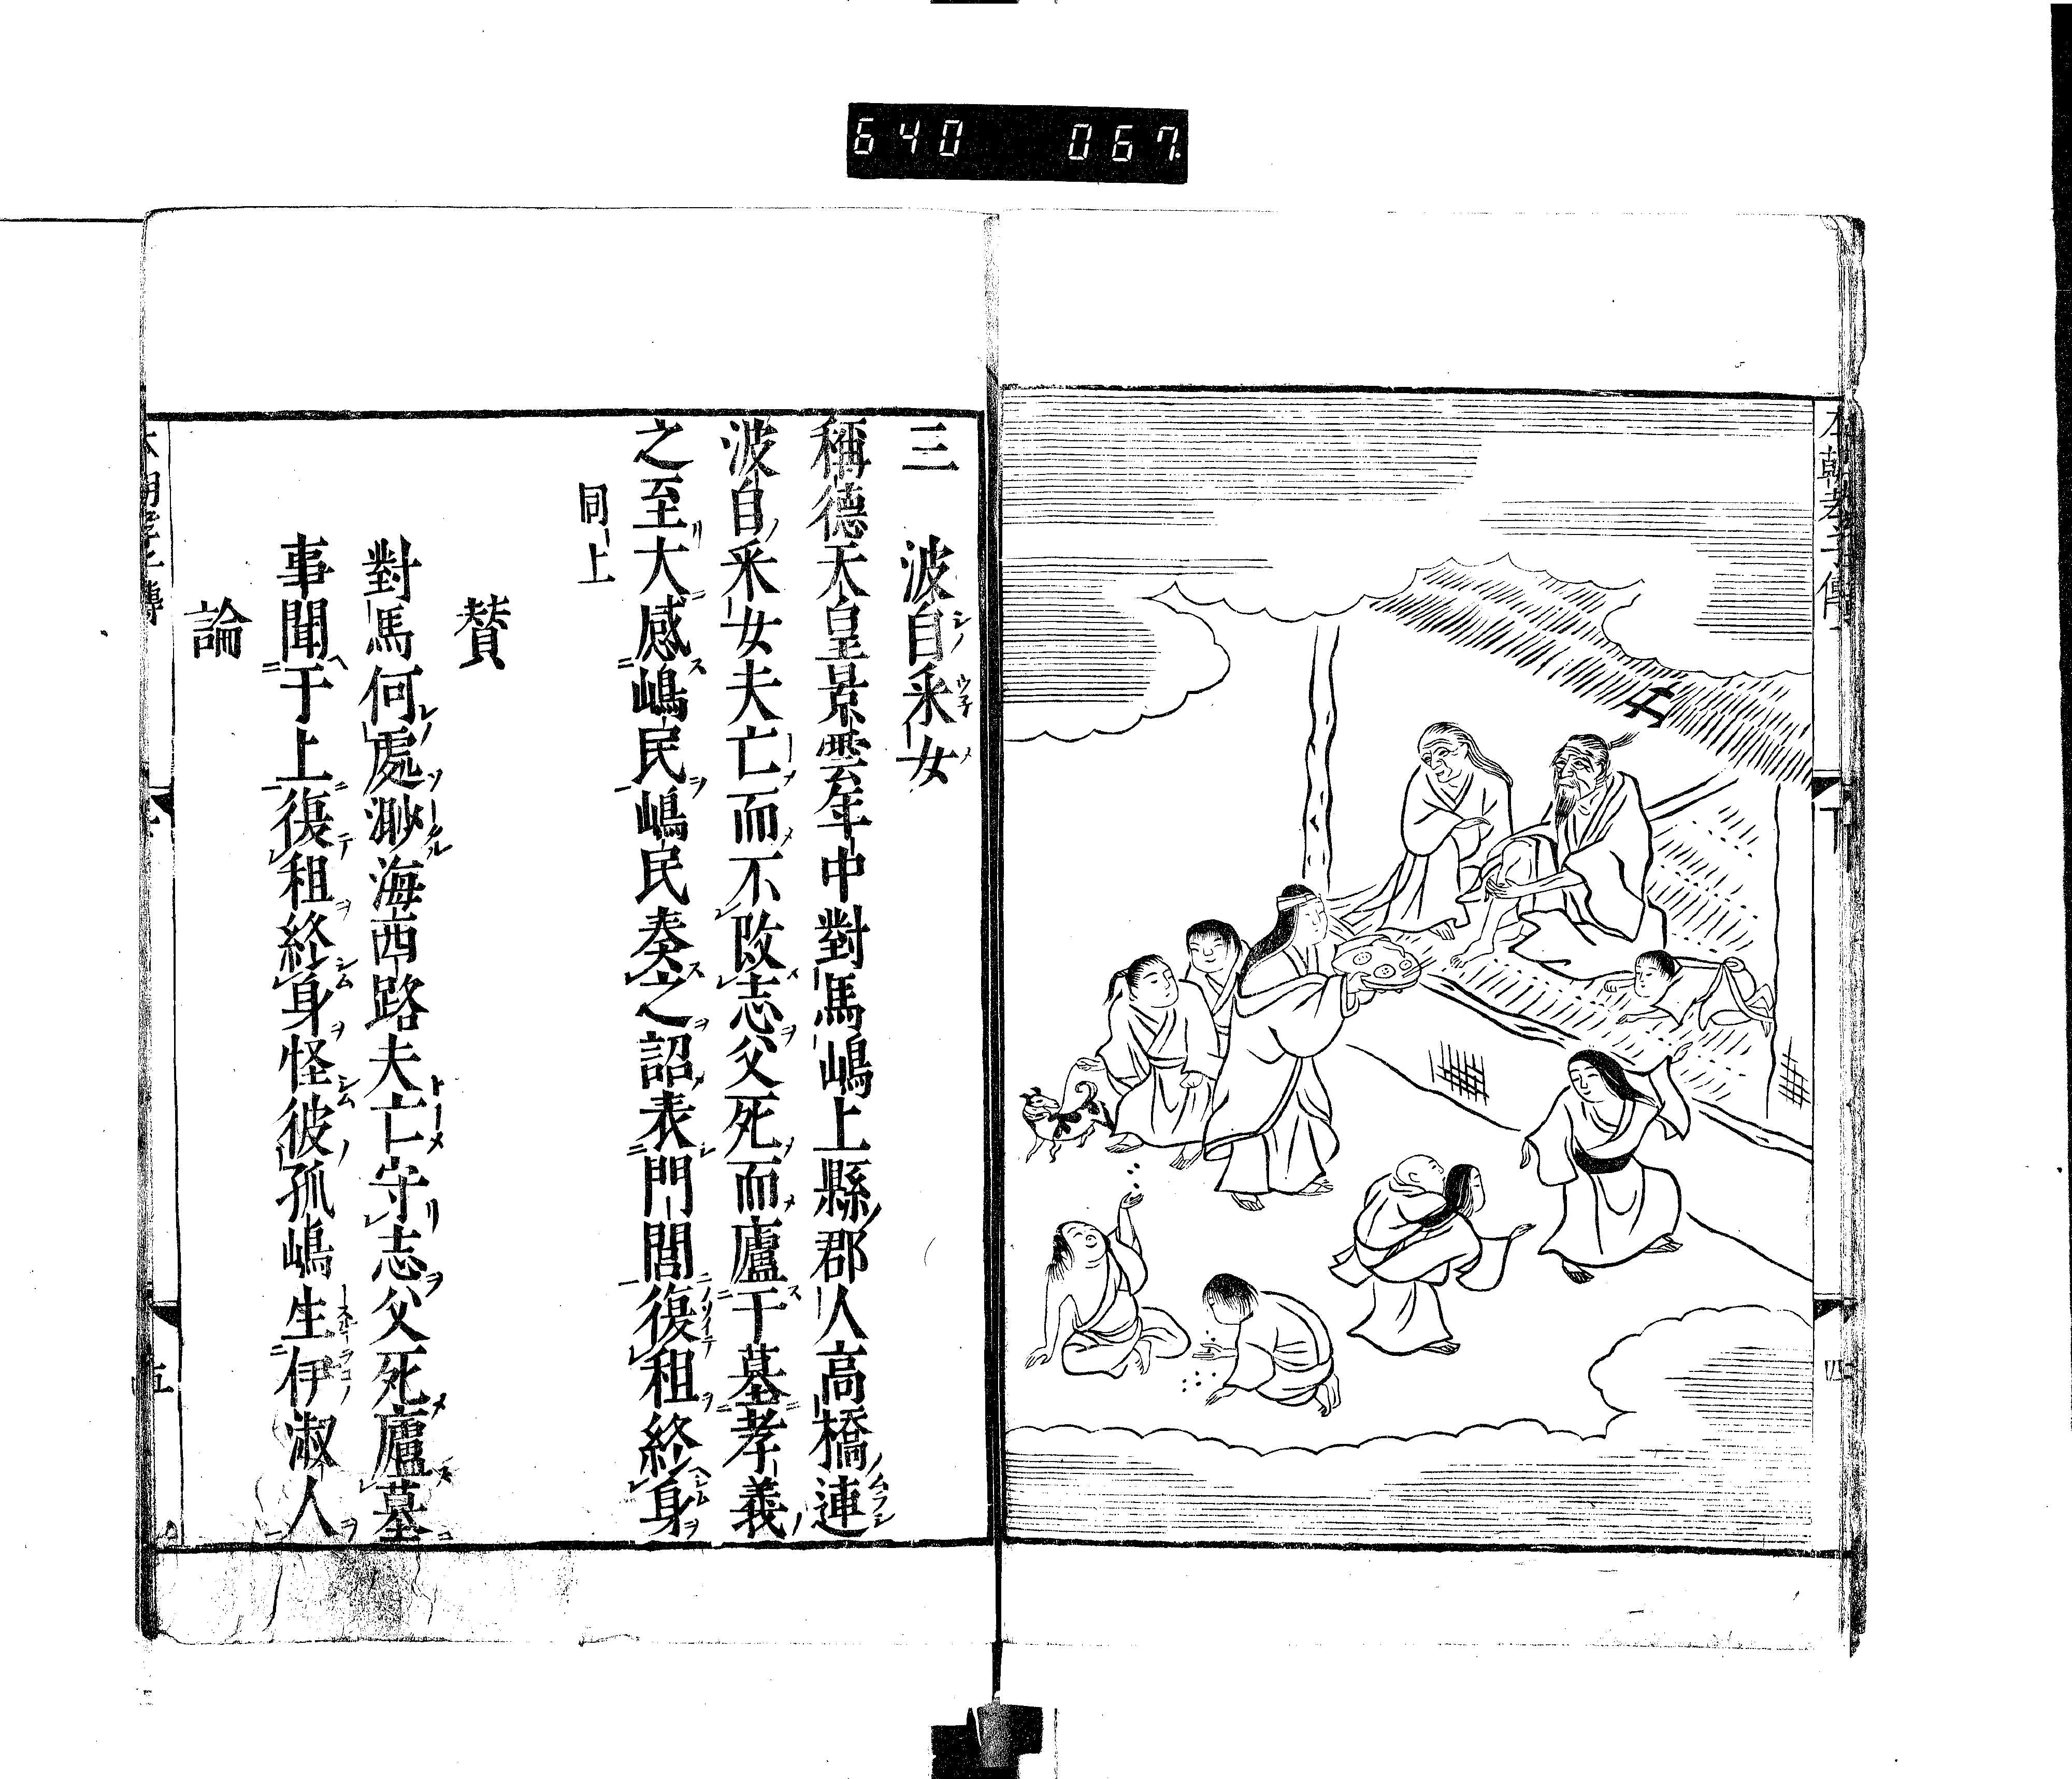 640 067
本朝孝子傳
下
四
三 波自采女
稱德天皇景雲年中對馬嶋上縣郡人高橋連
波自采女夫亡而不改志父死而廬于墓孝義
之至大感嶋民嶋民奏之詔表門閭復租終身
同上
贊
對馬何處渺海西路夫亡守志父死廬墓
事聞于上復租終身怪彼孤嶋生伊淑人
論
五